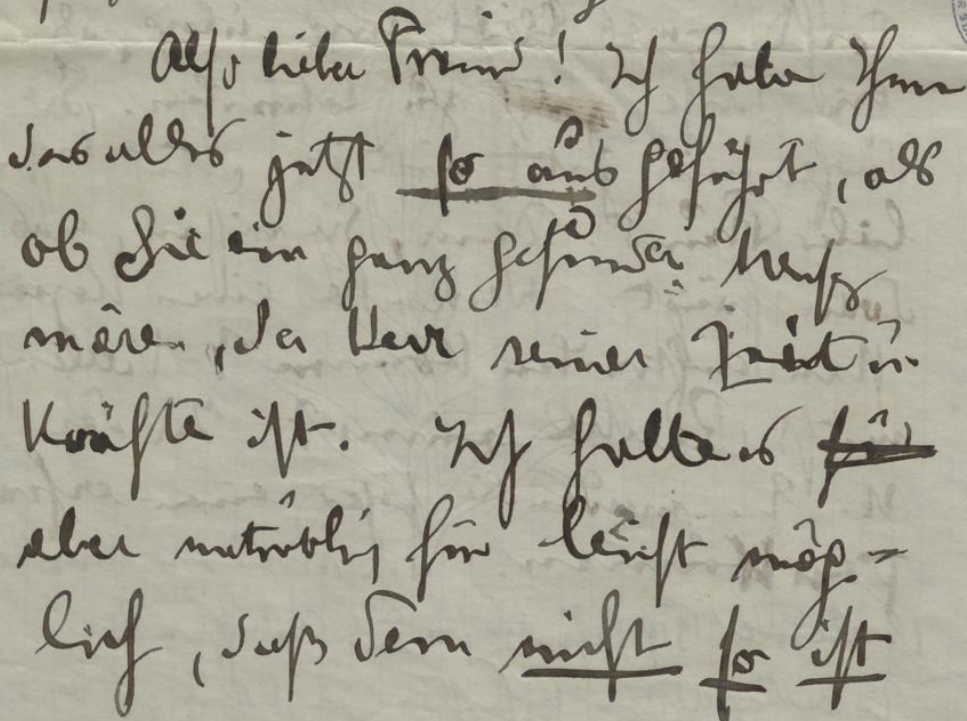 Also lieber Freund! Ich habe Ihnen
das alles jetzt so ausgeführt, als
ob Sie ein ganz gesunder Mensch
wären, der Herr seiner Zeit u.
Kräfte ist. Ich halte es für
aber natürlich für leicht mög-
lich, daß dem nicht so ist